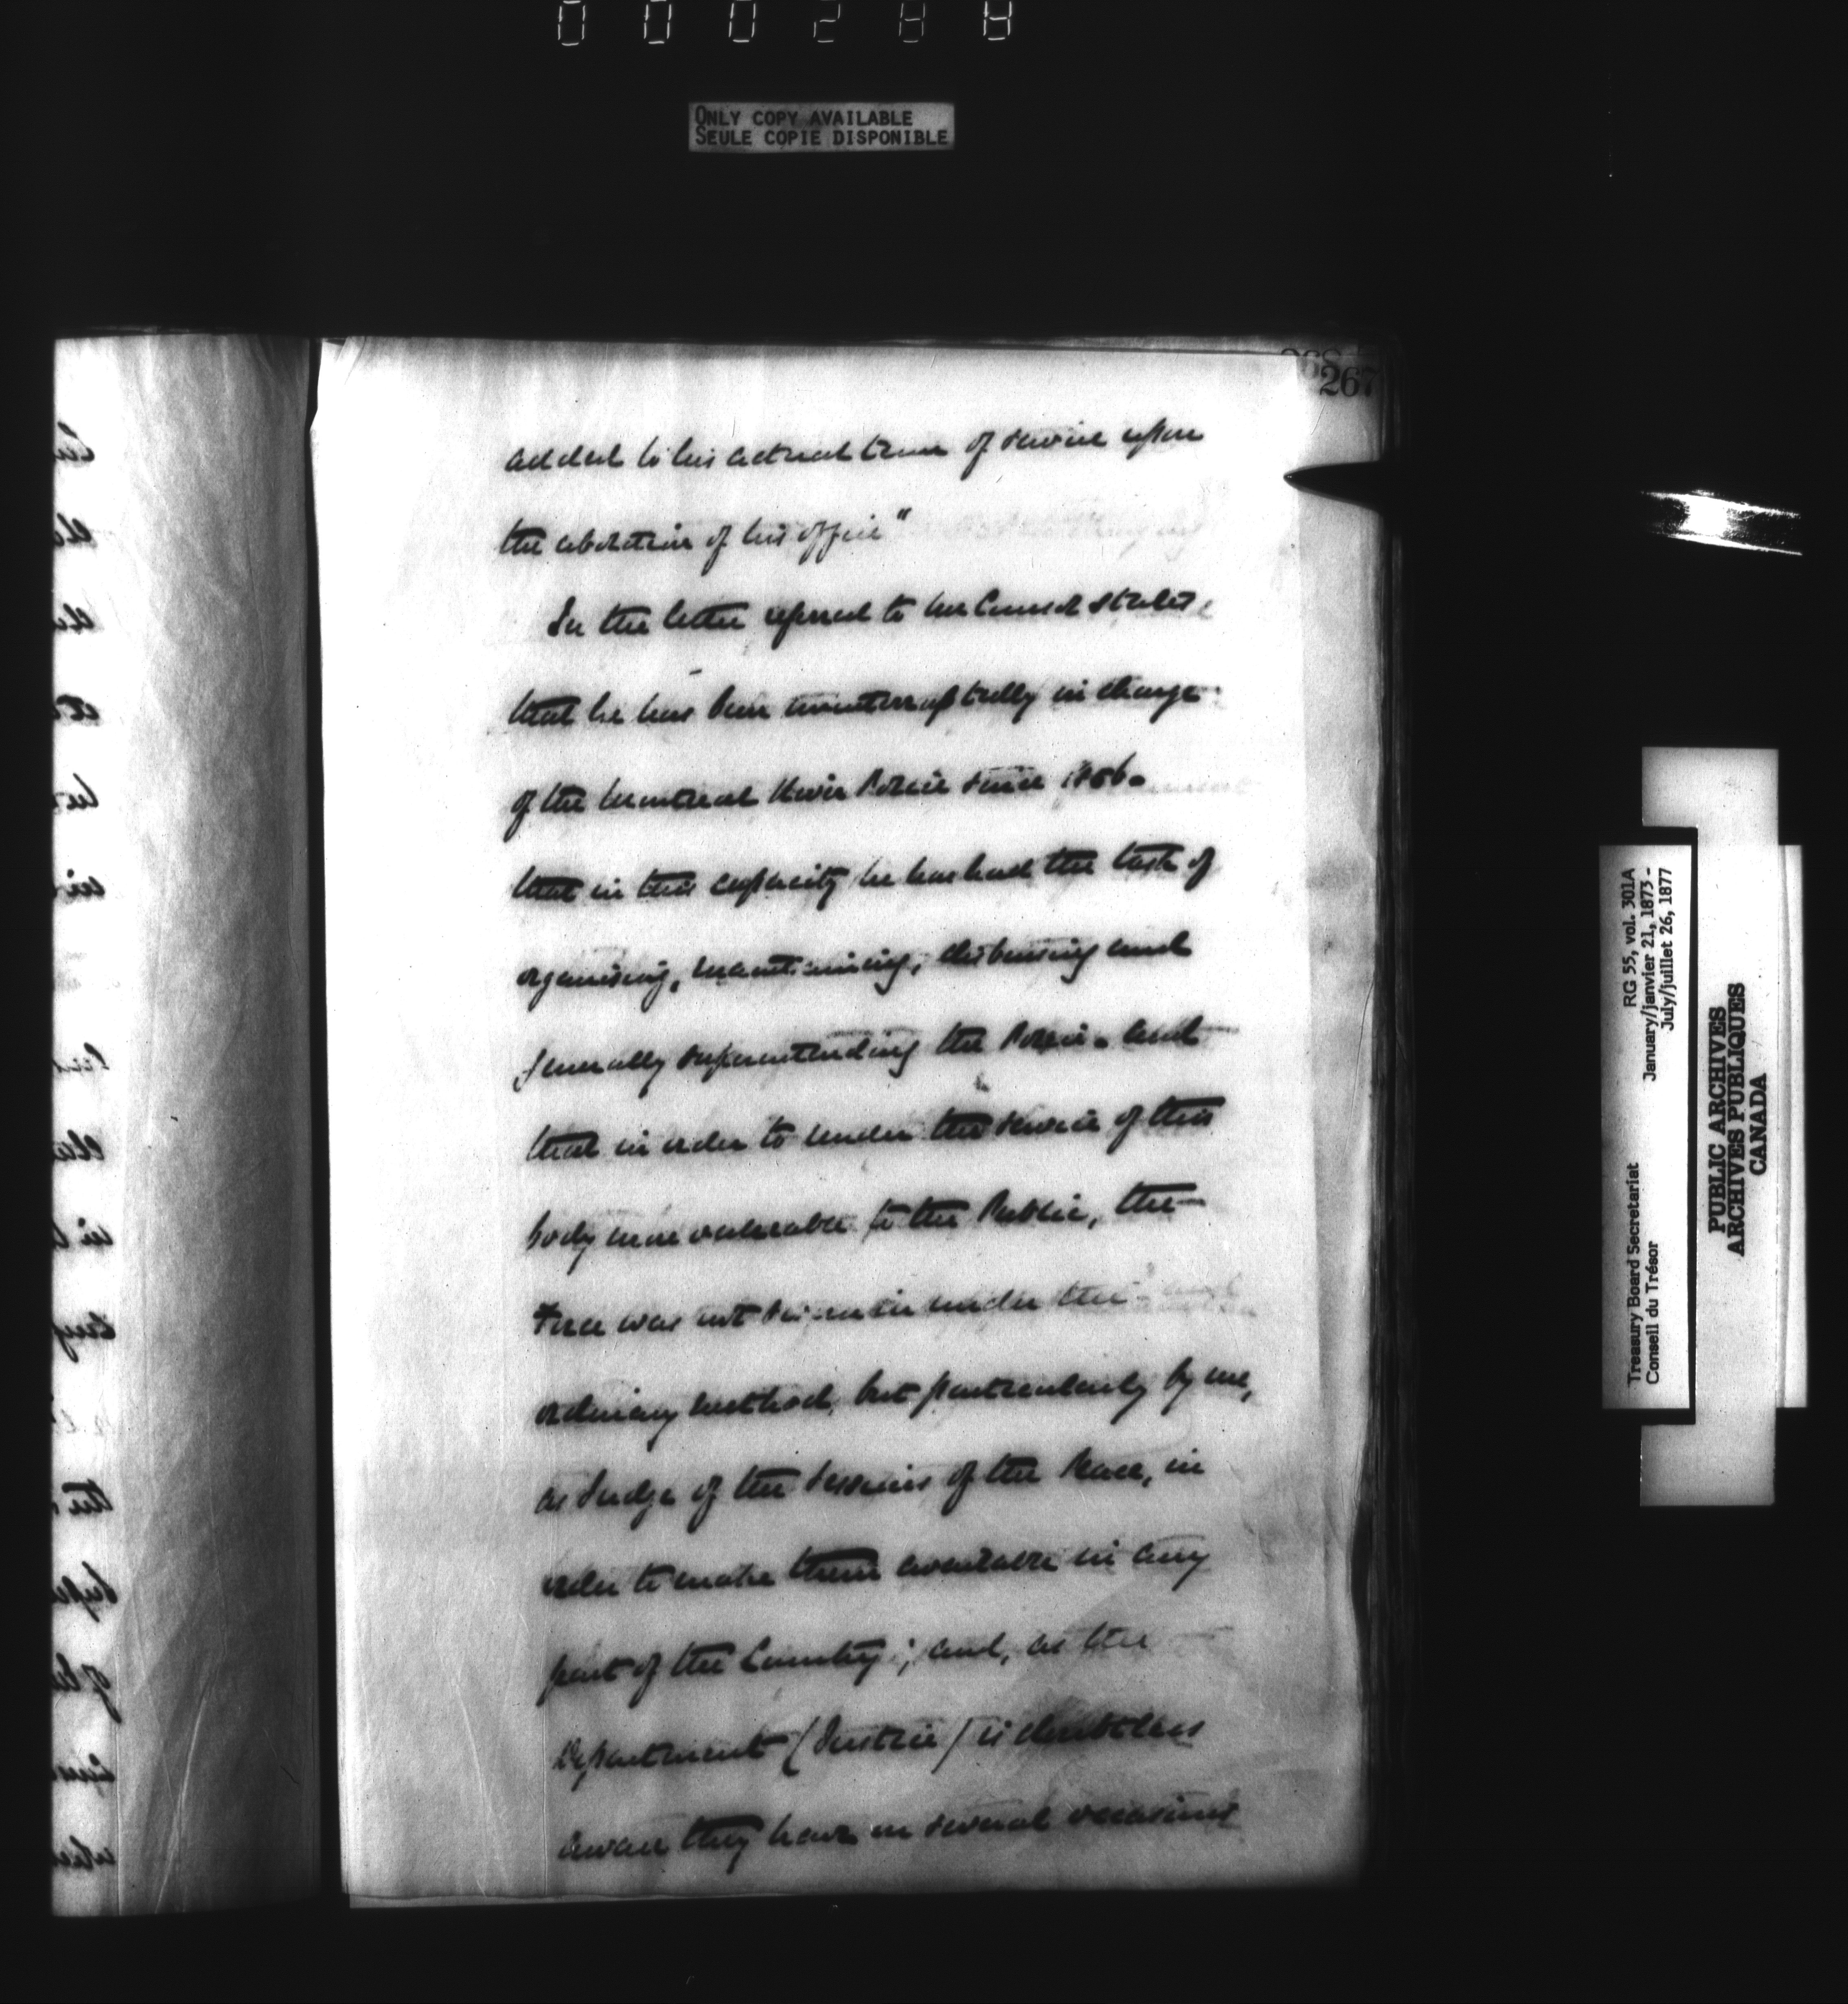 ONLY COPY AVAILABLE
SEULE COPIE DISPONIBLE
267
added to his actual term of service upon
the abolition of his office"
In the letter referred to Mr Coursol states
that he has been uninterruptedly in charge
of the Montreal River Police since 1856.
that in this capacity he has had the task of
organising, maintaining, disbursing and
generally superintending the Police. and
that in order to render the service of this
body more valuable to the Public, the
Force was not sworn in under the
ordinary method, but particularly by me,
as Judge of the Sessions of the Peace, in
order to make them available in any
part of the Country; and, as the
Department (Justice) is doubtless
aware they have on several occasions
RG 55, vol. 301A
January/janvier 21, 1873-
July/juillet 26, 1877
Treasury Board Secretariat
Conseil du Trésor
PUBLIC ARCHIVES
ARCHIVES PUBLIQUES
CANADA